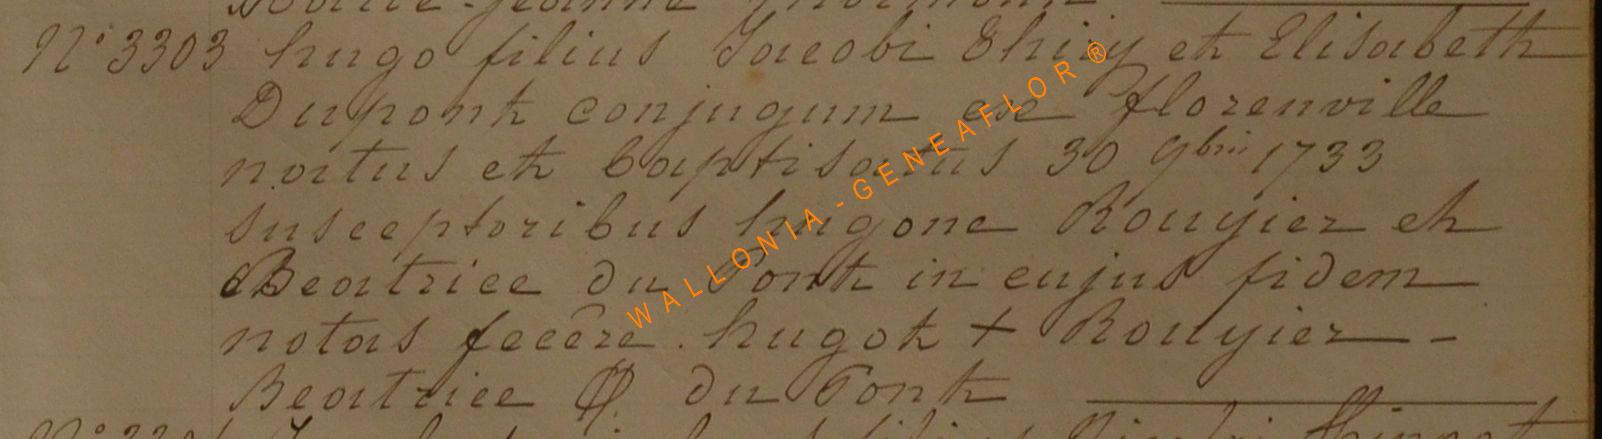 N° 3303 hugo filius Jacobi Thiry et Elisabeth
Dupont conjugum ex florenville
natus et baptisatus 30 9bris 1733
susceptoribus hugone Rouyier et
Beatrice du Pont in cujus fidem
notas fecêre . hugot + Rouyier -
Beatrice du Pont
WALLONIA - GENEAFLOR ®